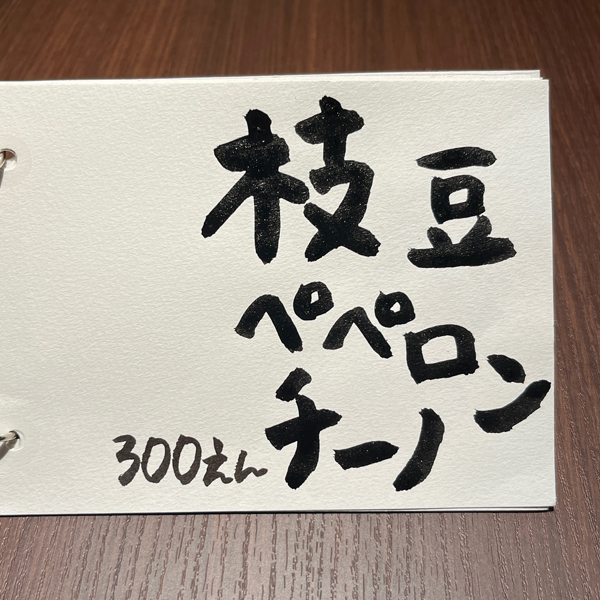 枝豆
ペペロン
チーノ
300えん